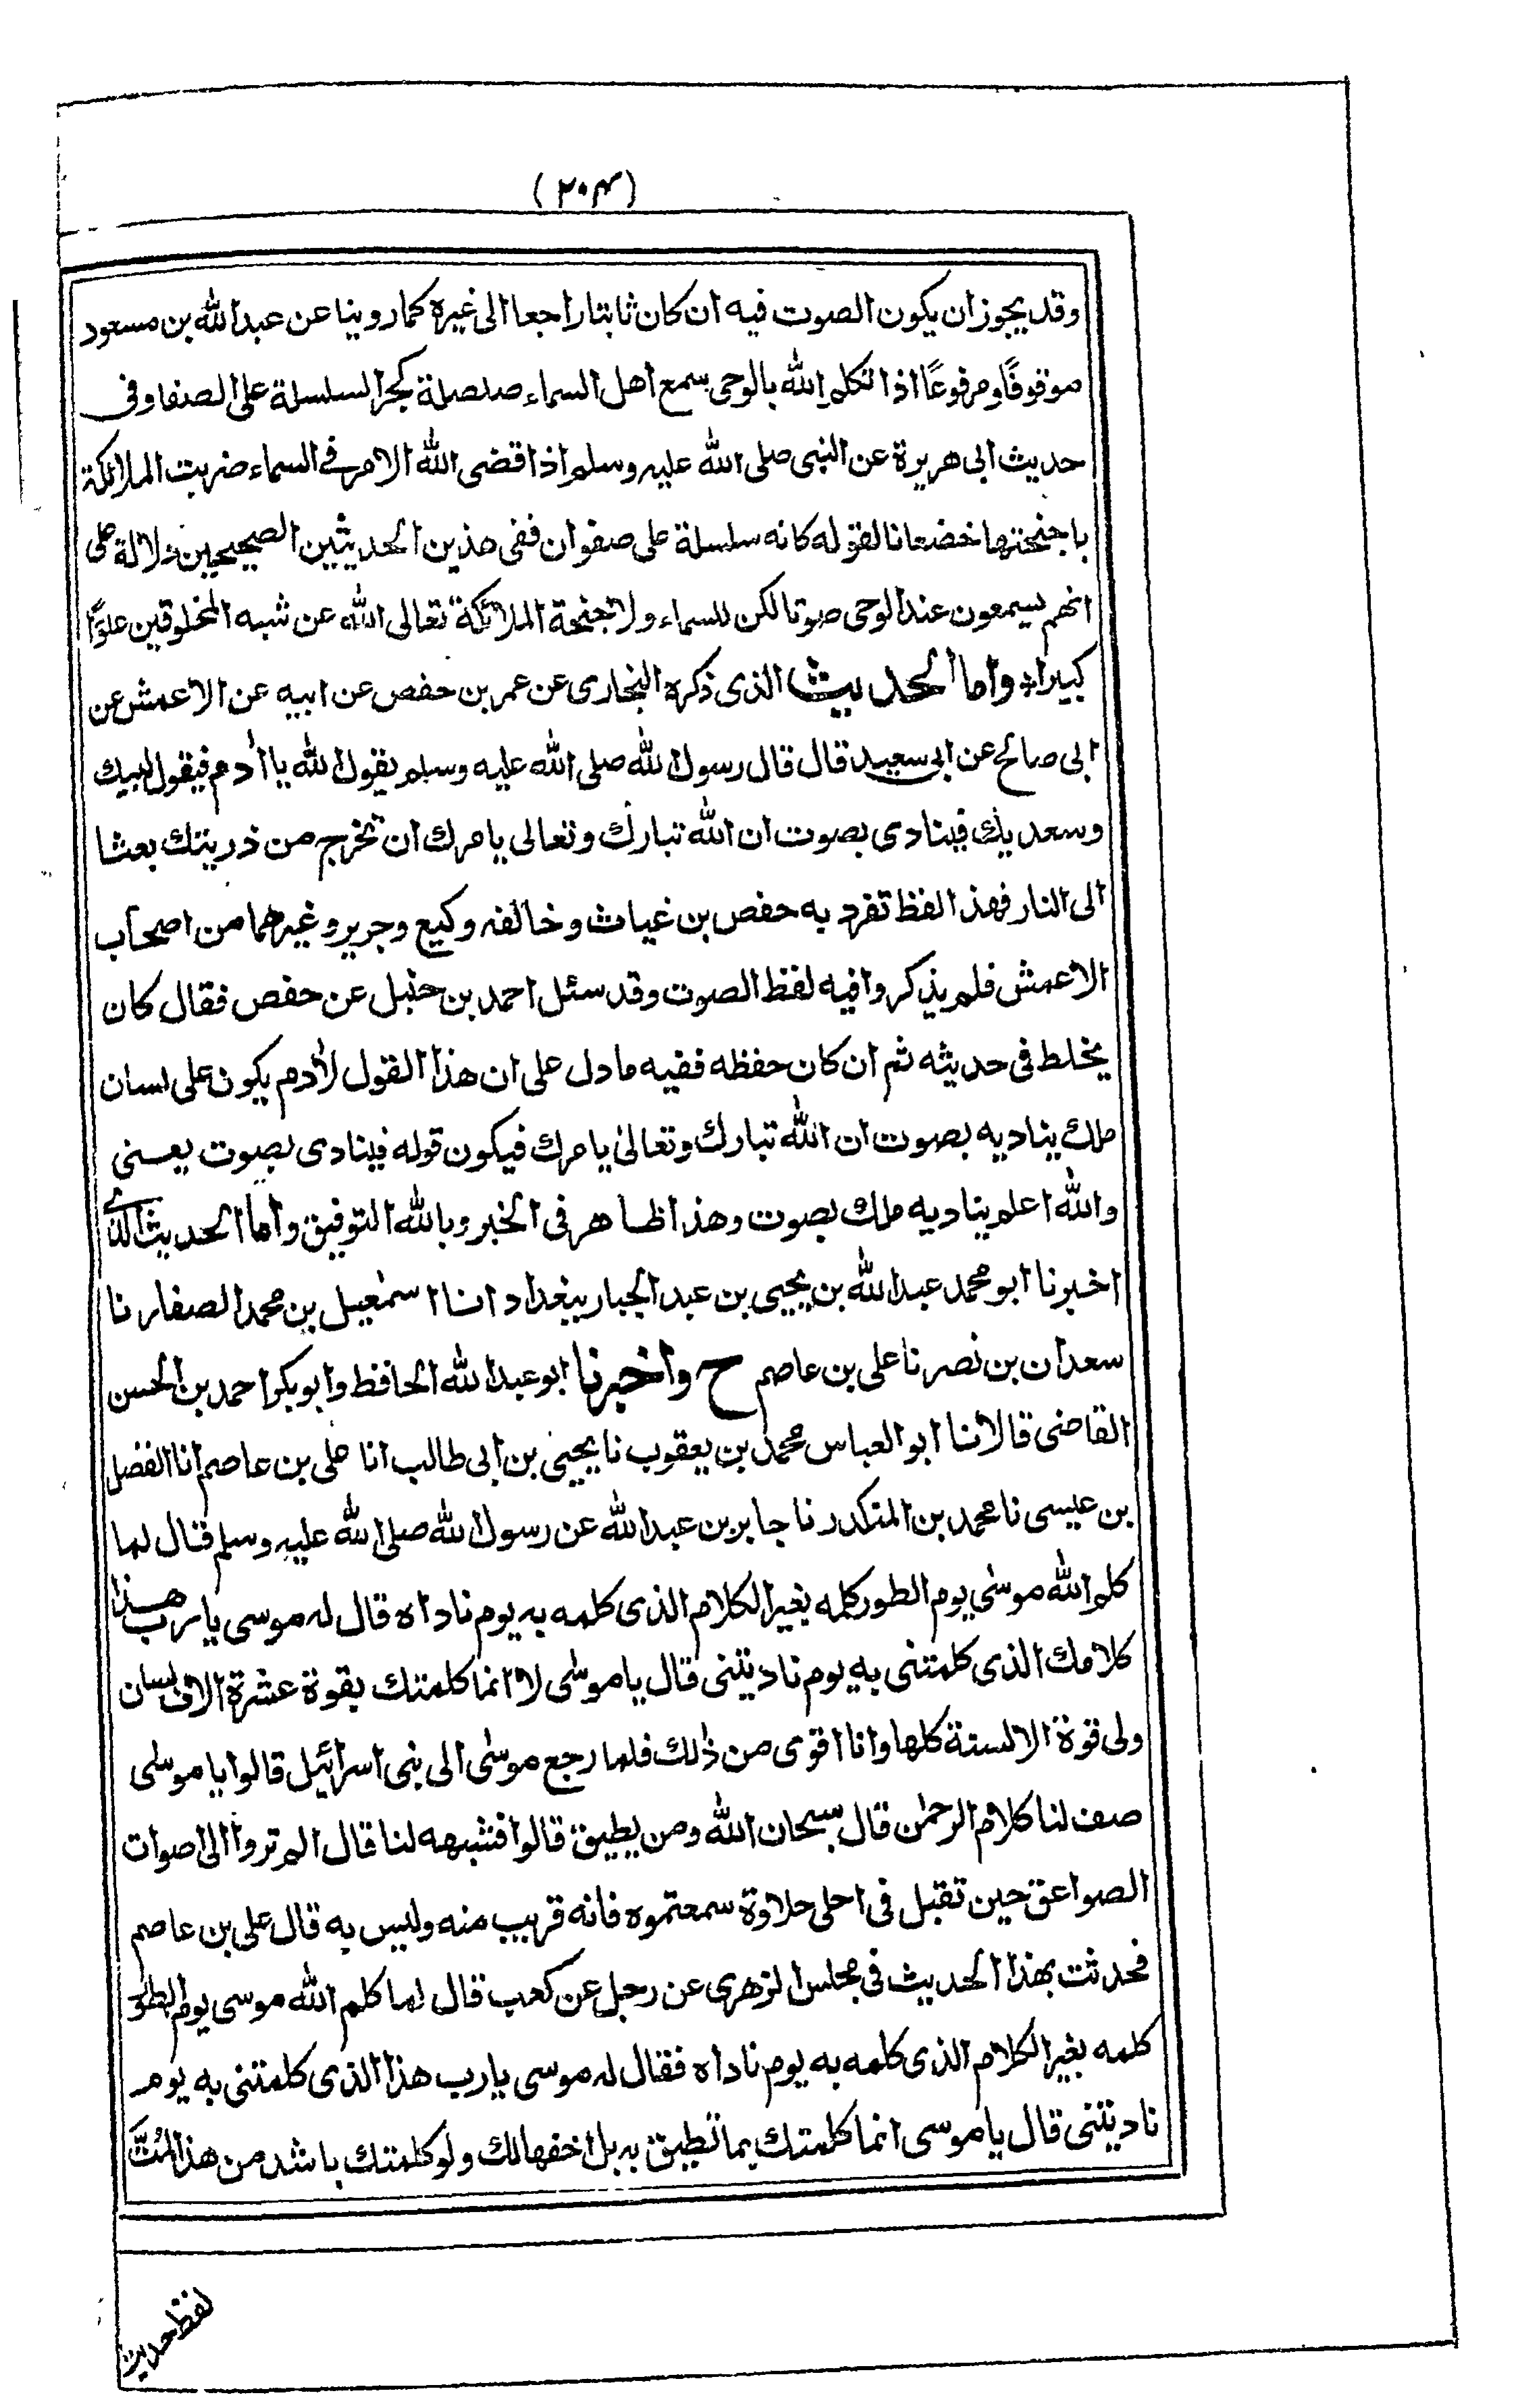 (۲۰۴)
وقد يجوز ان يكون الصوت فيه ان كان ثابتا راجعا الى غيره كما روينا عن عبد الله بن مسعود
موقوفًا ومرفوعًا اذا تكلم الله بالوحى سمع اهل السماء صلصلة كجر السلسلة على الصفا وفى
حديث ابى هريرة عن النبى صلى الله عليه وسلم اذا قضى الله الامر فى السماء ضربت الملائكة
باجنحتها خضعانا لقوله كانه سلسلة على صفوان ففى هذين الحديثين الصحيحين دلالة على
انهم يسمعون عند الوحى صوتا لكن للسماء ولاجنحة الملائكة تعالى الله عن شبه المخلوقين علوًّا
كبيرا۞ واما الحديث الذى ذكره البخارى عن عمر بن حفص عن ابيه عن الاعمش عن
ابى صالح عن ابى سعيد قال قال رسول الله صلى الله عليه وسلم يقول الله يا أدم فيقول لبيك
وسعديك فينادى بصوت ان الله تبارك وتعالى يامرك ان تخرج من ذريتك بعثا
الى النار فهذا لفظ تفرد به حفص بن غياث وخالفه وكيع وجرير وغيرهما من اصحاب
الاعمش فلم يذكروا فيه لفظ الصوت وقد سئل احمد بن حنبل عن حفص فقال كان
يخلط فى حديثه ثم ان كان حفظه ففيه ما دل على ان هذا القول لأدم يكون على لسان
ملك يناديه بصوت ان الله تبارك وتعالىٰ يامرك فيكون قوله فينادى بصوت يعنى
والله اعلم يناديه ملك بصوت وهذا ظاهر فى الخبر وبالله التوفيق واما الحديث الذى
اخبرنا ابو محمد عبد الله بن يحيى بن عبد الجبار ببغداد انا اسمٰعيل بن محمد الصفار نا
سعدان بن نصر نا على بن عاصم ح واخبرنا ابو عبد الله الحافظ وابو بكر احمد بن الحسن
القاضى قالا انا ابو العباس محمد بن يعقوب نا يحيى بن ابى طالب انا على بن عاصم انا الفضل
بن عيسى نا محمد بن المنكدر نا جابر بن عبد الله عن رسول الله صلى الله عليه وسلم قال لما
كلم الله موسٰى يوم الطور كلمه بغير الكلام الذى كلمه به يوم ناداه قال له موسى يا رب هذا
كلامك الذى كلمتنى به يوم ناديتنى قال يا موسٰى لا انما كلمتك بقوة عشرة الاف لسان
ولى قوة الالسنة كلها وانا اقوى من ذٰلك فلما رجع موسٰى الى بنى اسرائيل قالوا يا موسٰى
صف لنا كلام الرحمٰن قال سبحان الله ومن يطيق قالوا فشبهه لنا قال الم تروا الى اصوات
الصواعق حين تقبل فى احلى حلاوة سمعتموه فانه قريب منه وليس به قال على بن عاصم
فحدثت بهذا الحديث فى مجلس الزهرى عن رجل عن كعب قال لما كلم الله موسى يوم الطور
كلمه بغير الكلام الذى كلمه به يوم ناداه فقال له موسى يا رب هذا الذى كلمتنى به يوم
ناديتنى قال يا موسى انما كلمتك بما تطيق به بل اخفها لك ولو كلمتك باشد من هذا لمُتَّ
لفظ حديث